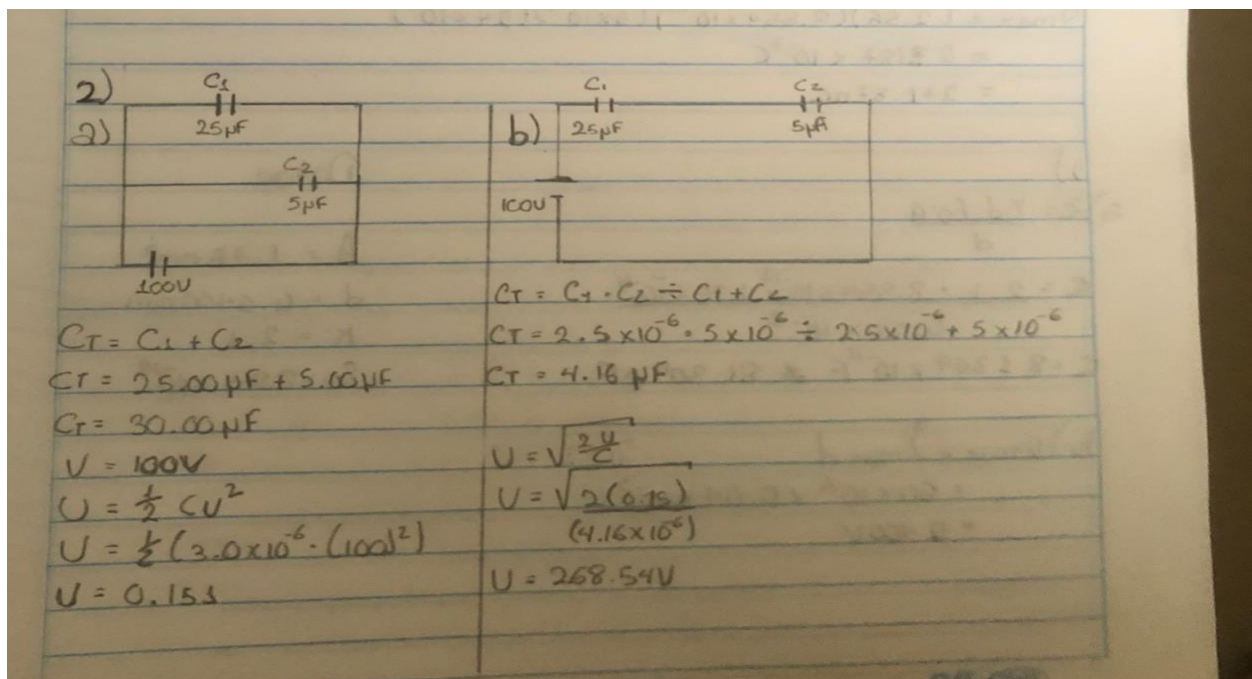 2)
a)
C1
25µF
C2
5µF
100V
CT = C1 + C2
CT = 25.00µF + 5.00µF
CT = 30.00µF
V = 100V
U = 1/2 CV²
U = 1/2 (3.0x10⁻⁶ · (100)²)
U = 0.15J
b)
C1
25µF
C2
5µF
100V
CT = C1 · C2 ÷ C1 + C2
CT = 2.5x10⁻⁶ · 5x10⁻⁶ ÷ 2.5x10⁻⁶ + 5x10⁻⁶
CT = 4.16 µF
V = √2U/C
V = √2(0.15)
(4.16x10⁻⁶)
V = 268.54V